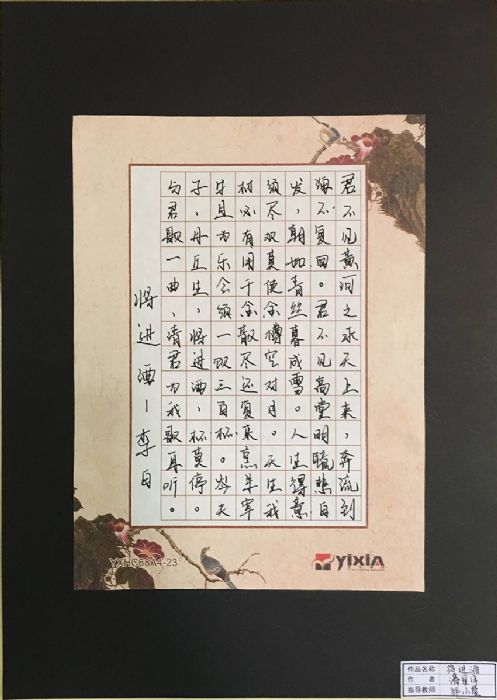 君不见黄河之水天上来，奔流到
海不复回。君不见高堂明镜悲白
发，朝如青丝暮成雪。人生得意
须尽欢莫使金樽空对月。天生我
材必有用千金散尽还复来烹羊宰
牛且为乐会须一饮三百杯。岑夫
子，丹丘生，将进酒，杯莫停。
与君歌一曲，请君为我歌耳听。
将进酒—李白
YXHQ68A4-23
YIXIN
作品名称 将进酒
作者
指导教师